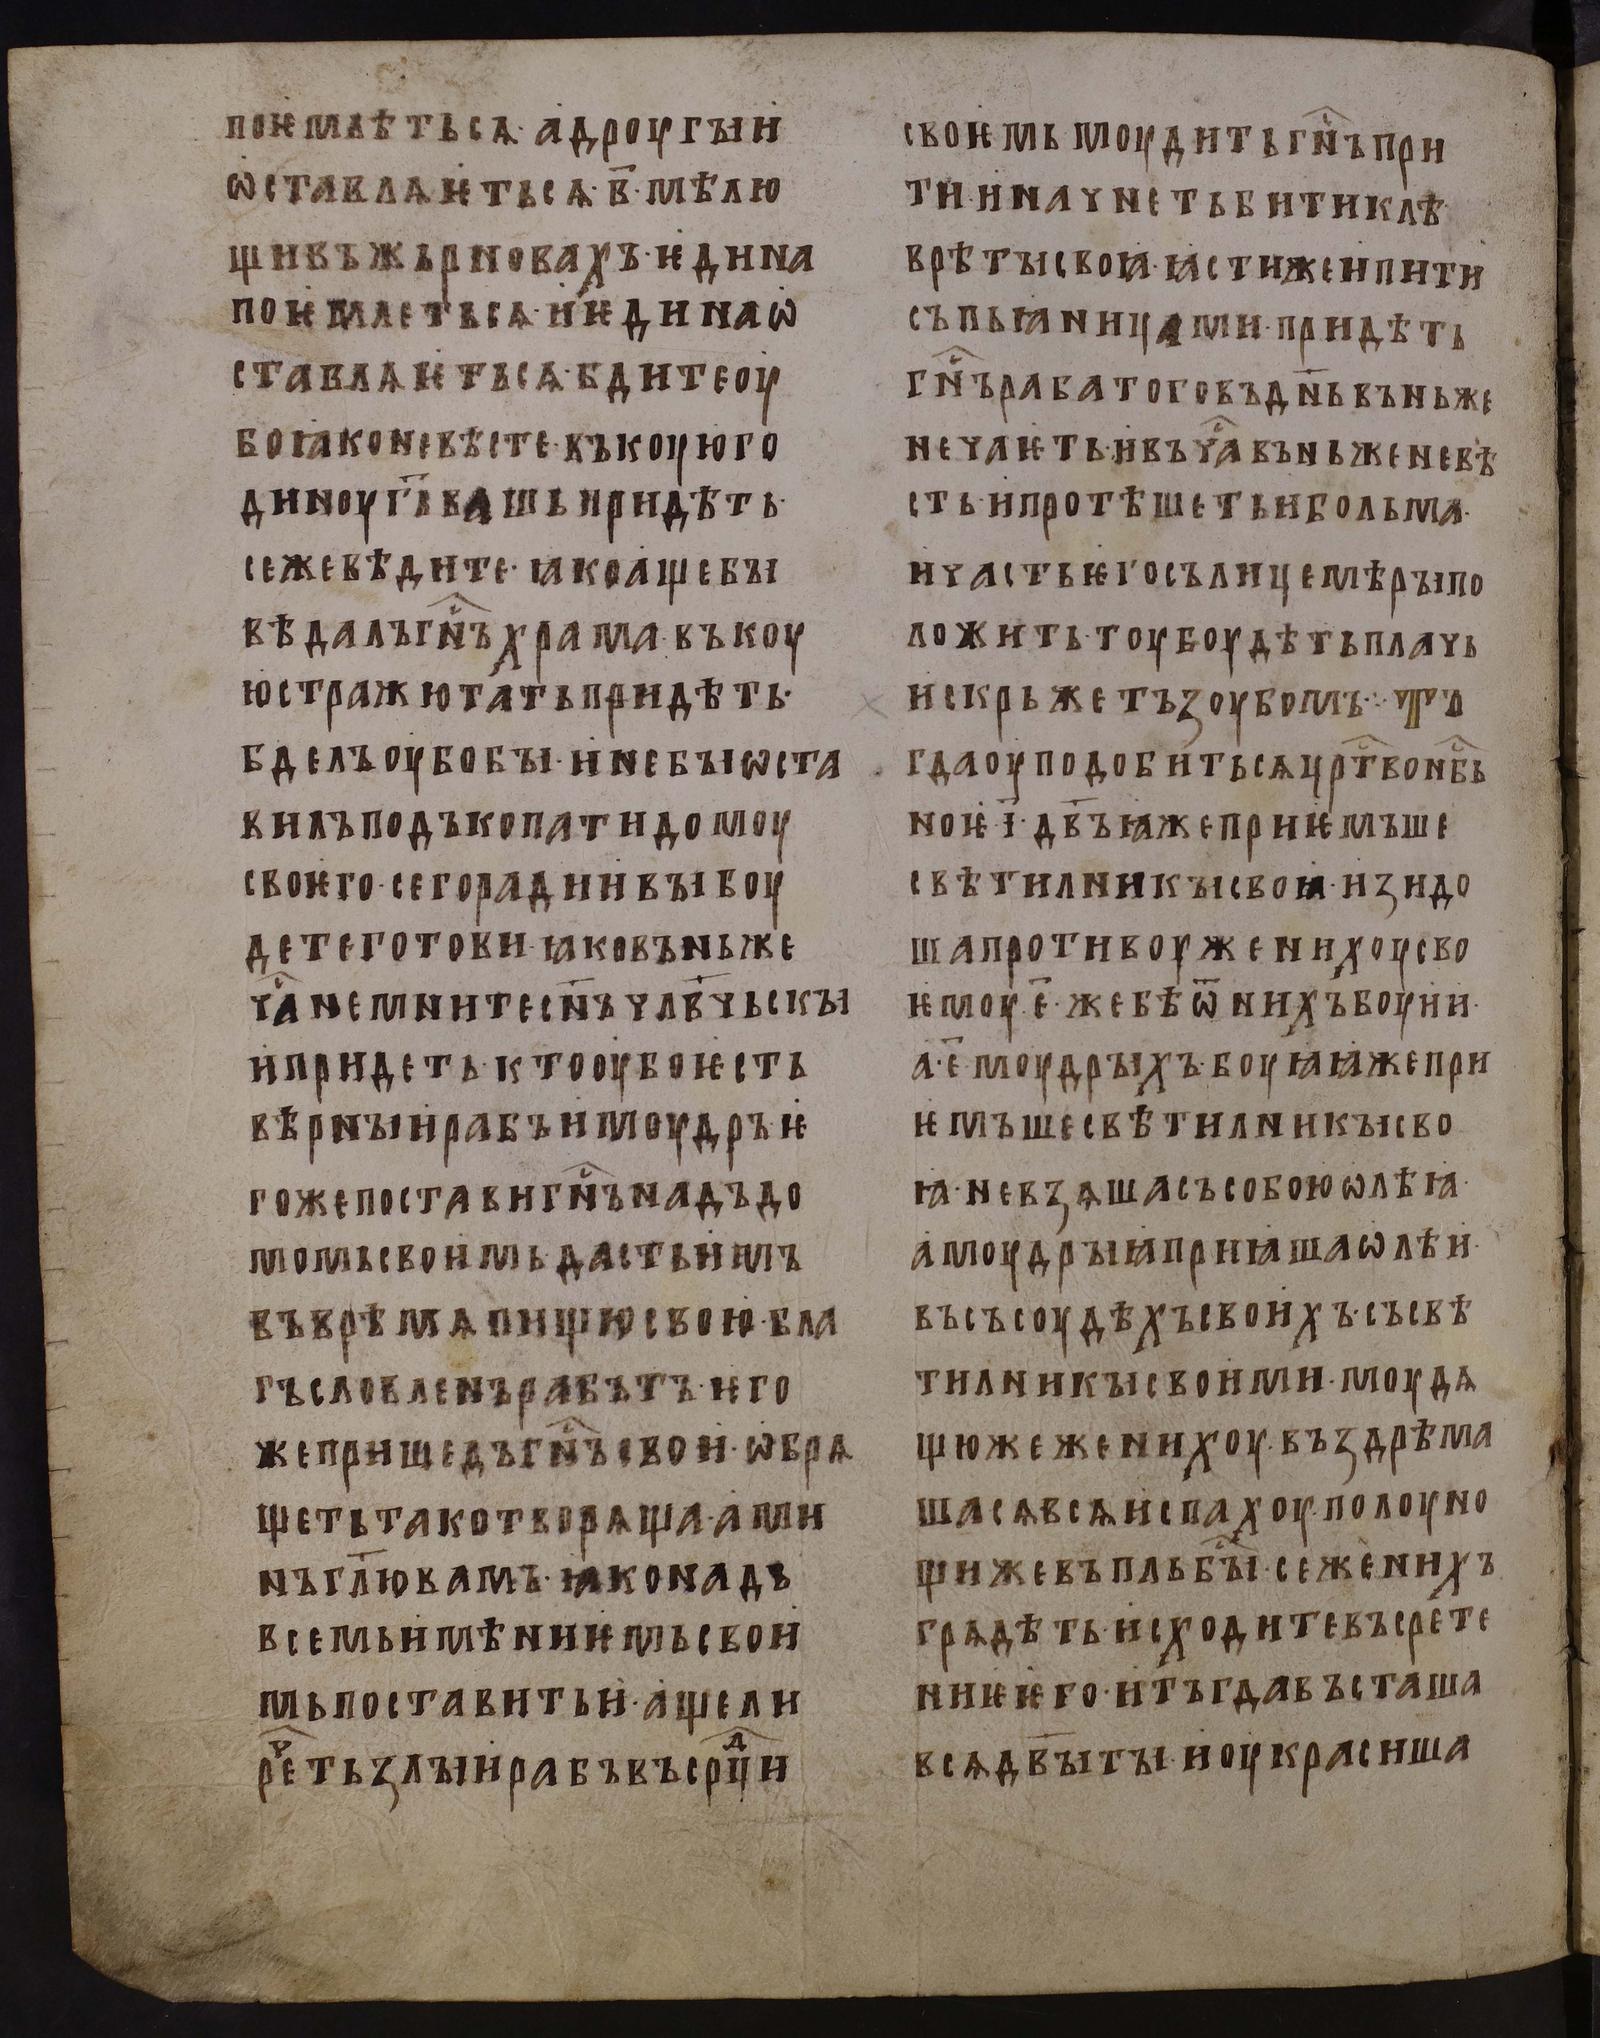 поѥмлѣтьсѧ· а дроугыи
ѡставлѧѥтьсѧ· в҃· мѣлю
щи въ жьрновахъ· ѥдина
поѥмлетьсѧ· и ѥдина ѡ
ставлѧѥтьсѧ· бдите оу
бо ꙗко не вѣсте· въ коую го
диноу г҃ь вашь придѣть·
се же вѣдите· ꙗко аще бы
вѣдалъ гн҃ъ храма· въ коу
ю стражю тать придѣть·
бделъ оубо бы· и не бы ѡста
вилъ подъкопати домоу
своѥго· сего ради и вы боу
дете готови· ꙗко въ ньже
ча҃ не мните сн҃ъ члв҃чьскы
и придеть· кто оубо ѥсть
вѣрныи рабъ и моудръ ѥ
гоже постави гн҃ъ надъ до
момь своимь дасть имъ
въ врѣмѧ пищю свою· бла
гъсловленъ рабъ тъ· ѥго
же пришедъ гн҃ъ свои· ѡбрѧ
щеть тако творѧща· ами
нъ гл҃ю вамъ· ꙗко надь
всемь имѣниѥмь свои
мь поставить и· аще ли
реч҃ть ꙁлыи рабъ въ ср҃дци
своѥмь моудить гн҃ъ при
ти· и начнеть бити клѣ
врѣты своꙗ· ꙗсти же и пити
съ пьꙗницами· придѣть
гн҃ъ раба того въ дн҃ь въ ньже
не чаѥть· и въ ча҃ въ ньже не вѣ
сть· и протѣшеть и больма·
и часть ѥго съ лицемѣры по
ложить· тоу боудѣть плачь
и скрьжетъ ꙁоубомъ· То
гда оуподобитьсѧ цр҃тво нб҃ь
ноѥ· і҃· дв҃ъ ꙗже приѥмъше
свѣтилникы своꙗ· иꙁидо
ша противоу жениху сво
ѥмоу· е҃· же бѣ ѿ нихъ боуии·
а· е҃· моудрыхъ· боуꙗꙗ же при
ѥмъше свѣтилникы сво
ꙗ· не вꙁѧша съ собою ѡлѣꙗ·
а моудрыꙗ приꙗша ѡлѣи·
въ съсоудѣхъ своихъ· съ свѣ
тилникы своими· моудѧ
щю же женихоу· въꙁдрѣма
шасѧ всѧ и спахоу· полоуно
щи же въпль бы҃· се женихъ
грѧдѣть· исходите въ срете
ниѥ ѥго· и тъгда въсташа
всѧ дв҃ы ты· и оукрасиша